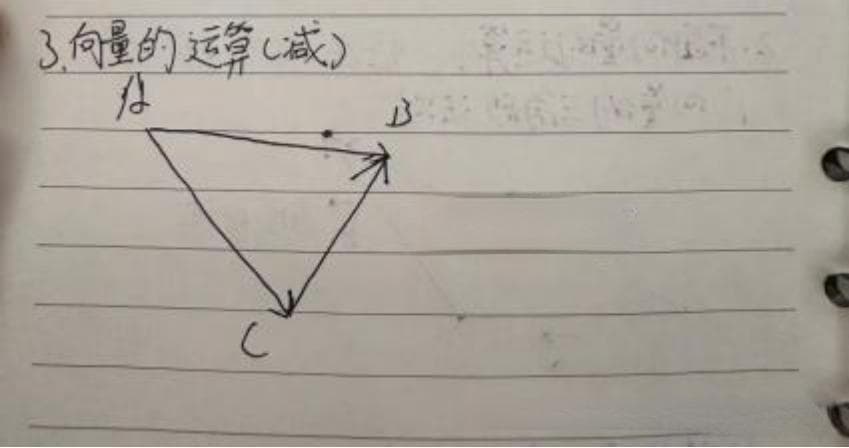 3.向量的运算(减)
A
B
C